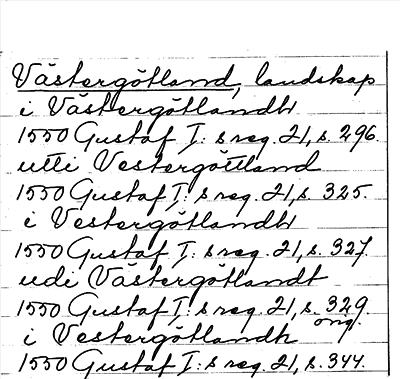 Västergötland, landskap
i Västergötlandh
1550 Gustaf I:s reg. 21, s. 296.
utti Vestergöttland
1550 Gustaf I:s reg. 21, s. 325.
i Vestergötlandh
1550 Gustaf I:s reg. 21, s. 327.
udi Västergötlandt
1550 Gustaf I:s reg. 21, s. 329.
orig.
i Vestergötlandh
1550 Gustaf I:s reg. 21, s. 344.